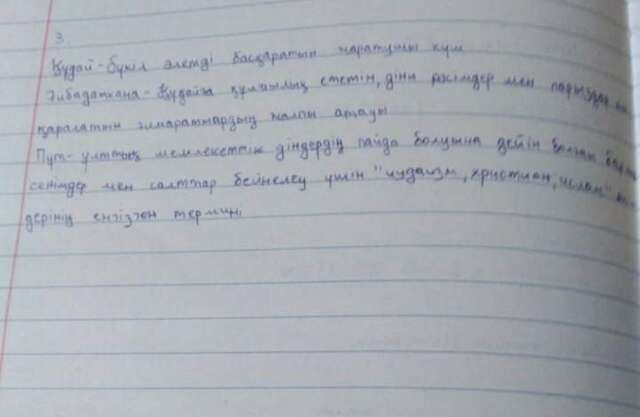 3.
Құдай - бүкіл әлемді басқаратын жаратушы күш
Ғибадатхана - Құдайға құлшылық ететін, діни рәсімдер мен парыздар
қаралатын ғимараттардың жалпы атауы
Пұт - ұлттық мемлекеттік діндердің пайда болуына дейін болған
сенімдер мен салттар бейнелеу үшін "иудаизм, христиан, ислам"
дерінің енгізген терміні